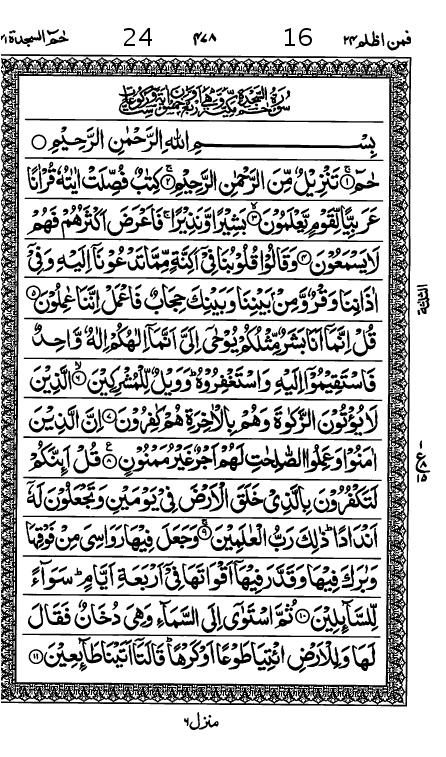 حٰمٓ السجدة ٤١ 24 ٤٧٨ 16 فمن اظلم ٢٤
بِسْمِ اللهِ الرَّحْمٰنِ الرَّحِيْمِ
حٰمٓ ۚ﴿۱﴾ تَنْزِيْلٌ مِّنَ الرَّحْمٰنِ الرَّحِيْمِ ۚ﴿۲﴾ كِتٰبٌ فُصِّلَتْ اٰيٰتُهٗ قُرْاٰنًا
عَرَبِيًّا لِّقَوْمٍ يَّعْلَمُوْنَ ۙ﴿۳﴾ بَشِيْرًا وَّنَذِيْرًا ۚ فَاَعْرَضَ اَكْثَرُهُمْ فَهُمْ
لَا يَسْمَعُوْنَ ﴿۴﴾ وَقَالُوْا قُلُوْبُنَا فِيْۤ اَكِنَّةٍ مِّمَّا تَدْعُوْنَاۤ اِلَيْهِ وَفِيْۤ
اٰذَانِنَا وَقْرٌ وَّمِنْۢ بَيْنِنَا وَبَيْنِكَ حِجَابٌ فَاعْمَلْ اِنَّنَا عٰمِلُوْنَ ﴿۵﴾
قُلْ اِنَّمَاۤ اَنَا بَشَرٌ مِّثْلُكُمْ يُوْحٰۤى اِلَيَّ اَنَّمَاۤ اِلٰهُكُمْ اِلٰهٌ وَّاحِدٌ
فَاسْتَقِيْمُوْۤا اِلَيْهِ وَاسْتَغْفِرُوْهُ ؕ وَوَيْلٌ لِّلْمُشْرِكِيْنَ ۙ﴿۶﴾ الَّذِيْنَ
لَا يُؤْتُوْنَ الزَّكٰوةَ وَهُمْ بِالْاٰخِرَةِ هُمْ كٰفِرُوْنَ ﴿۷﴾ اِنَّ الَّذِيْنَ
اٰمَنُوْا وَعَمِلُوا الصّٰلِحٰتِ لَهُمْ اَجْرٌ غَيْرُ مَمْنُوْنٍ ﴿۸﴾ قُلْ اَئِنَّكُمْ
لَتَكْفُرُوْنَ بِالَّذِيْ خَلَقَ الْاَرْضَ فِيْ يَوْمَيْنِ وَتَجْعَلُوْنَ لَهٗۤ
اَنْدَادًا ؕ ذٰلِكَ رَبُّ الْعٰلَمِيْنَ ۚ﴿۹﴾ وَجَعَلَ فِيْهَا رَوَاسِيَ مِنْ فَوْقِهَا
وَبٰرَكَ فِيْهَا وَقَدَّرَ فِيْهَاۤ اَقْوَاتَهَا فِيْۤ اَرْبَعَةِ اَيَّامٍ ؕ سَوَآءً
لِّلسَّآئِلِيْنَ ﴿۱۰﴾ ثُمَّ اسْتَوٰۤى اِلَى السَّمَآءِ وَهِيَ دُخَانٌ فَقَالَ
لَهَا وَلِلْاَرْضِ ائْتِيَا طَوْعًا اَوْ كَرْهًا ؕ قَالَتَاۤ اَتَيْنَا طَآئِعِيْنَ ﴿۱۱﴾
منزل ٦